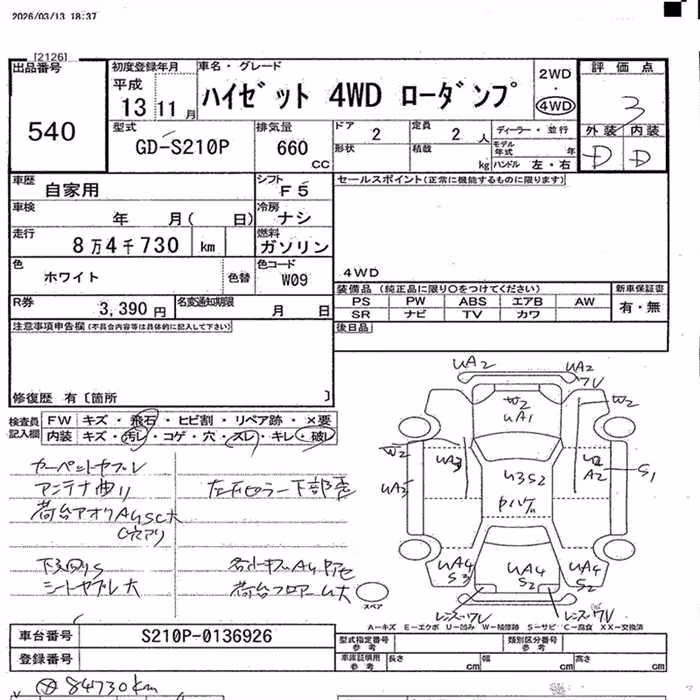 2026/03/13 18:37
[2126]
出品番号
540
初度登録年月
平成
13 11 月
車名・グレード
ハイゼット 4WD ローダンプ
2WD
・
4WD
評価点
3
外装 内装
D D
型式
GD-S210P
排気量
660
CC
ドア
2
定員
2 人
形状
積載
kg
ディーラー・並行
モデル年式 年
ハンドル 左・右
車歴
自家用
シフト
F5
車検
年 月( 日)
冷房
ナシ
走行
8万4千730 km
燃料
ガソリン
色
ホワイト
色替
色コード
W09
R券
3,390 円
名変通知期限
月 日
セールスポイント(正常に機能するものに限ります)
4WD
装備品 (純正品に限り○をつけてください)
PS PW ABS エアB AW
SR ナビ TV カワ
新車保証書
有・無
後日品
注意事項申告欄(不具合内容等は具体的に記入して下さい)
修復歴 有〔箇所 〕
検査員
記入欄
FW キズ・飛石・ヒビ割・リペア跡・×要
内装 キズ・汚レ・コゲ・穴・スレ・キレ・破レ
カーペットヤブレ
アンテナ曲リ
荷台アオリ
C穴アリ
下回りS
シートヤブレ大
UA2
UA2
W2
UA1
W2
W2
UA3
UA3
U3S2
A2
S1
UA4
S3
UA4
S2
UA4
S2
レンズワレ
スペア
A－キズ E－エクボ U－凹み W－補修跡 S－サビ C－腐食 XX－交換済
車台番号
S210P-0136926
登録番号
型式指定番号
参考
類別区分番号
参考
車庫証明用
参考
長さ cm 幅 cm 高さ cm
84730km